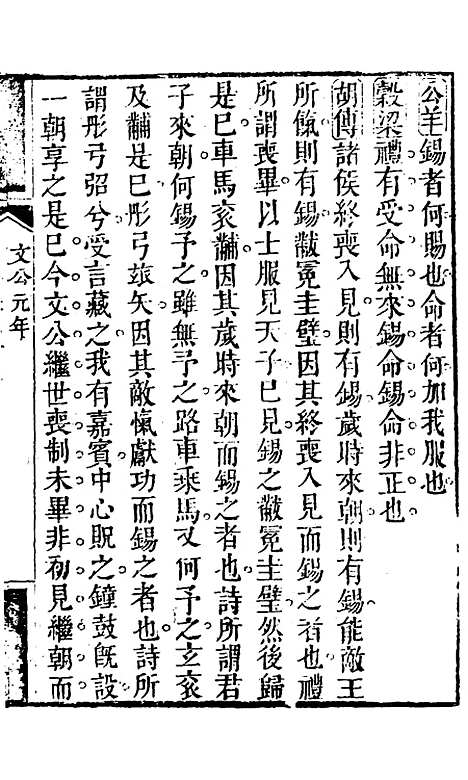 公羊錫者何賜也命者何加我服也
穀梁禮有受命無來錫命錫命非正也
胡傳諸侯終喪入見則有錫歲時來朝則有錫能敵王
所愾則有錫黻冕圭璧因其終喪入見而錫之者也禮
所謂喪畢以士服見天子巳見錫之黻冕圭璧然後歸
是巳車馬衮黼因其歲時來朝而錫之者也詩所謂君
子來朝何錫予之雖無予之路車乘馬又何予之玄衮
及黼是巳彤弓玈矢因其敵愾獻功而錫之者也詩所
謂彤弓弨兮受言藏之我有嘉賓中心貺之鐘鼓旣設
一朝享之是巳今文公繼世喪制未畢非初見繼朝而
文公元年